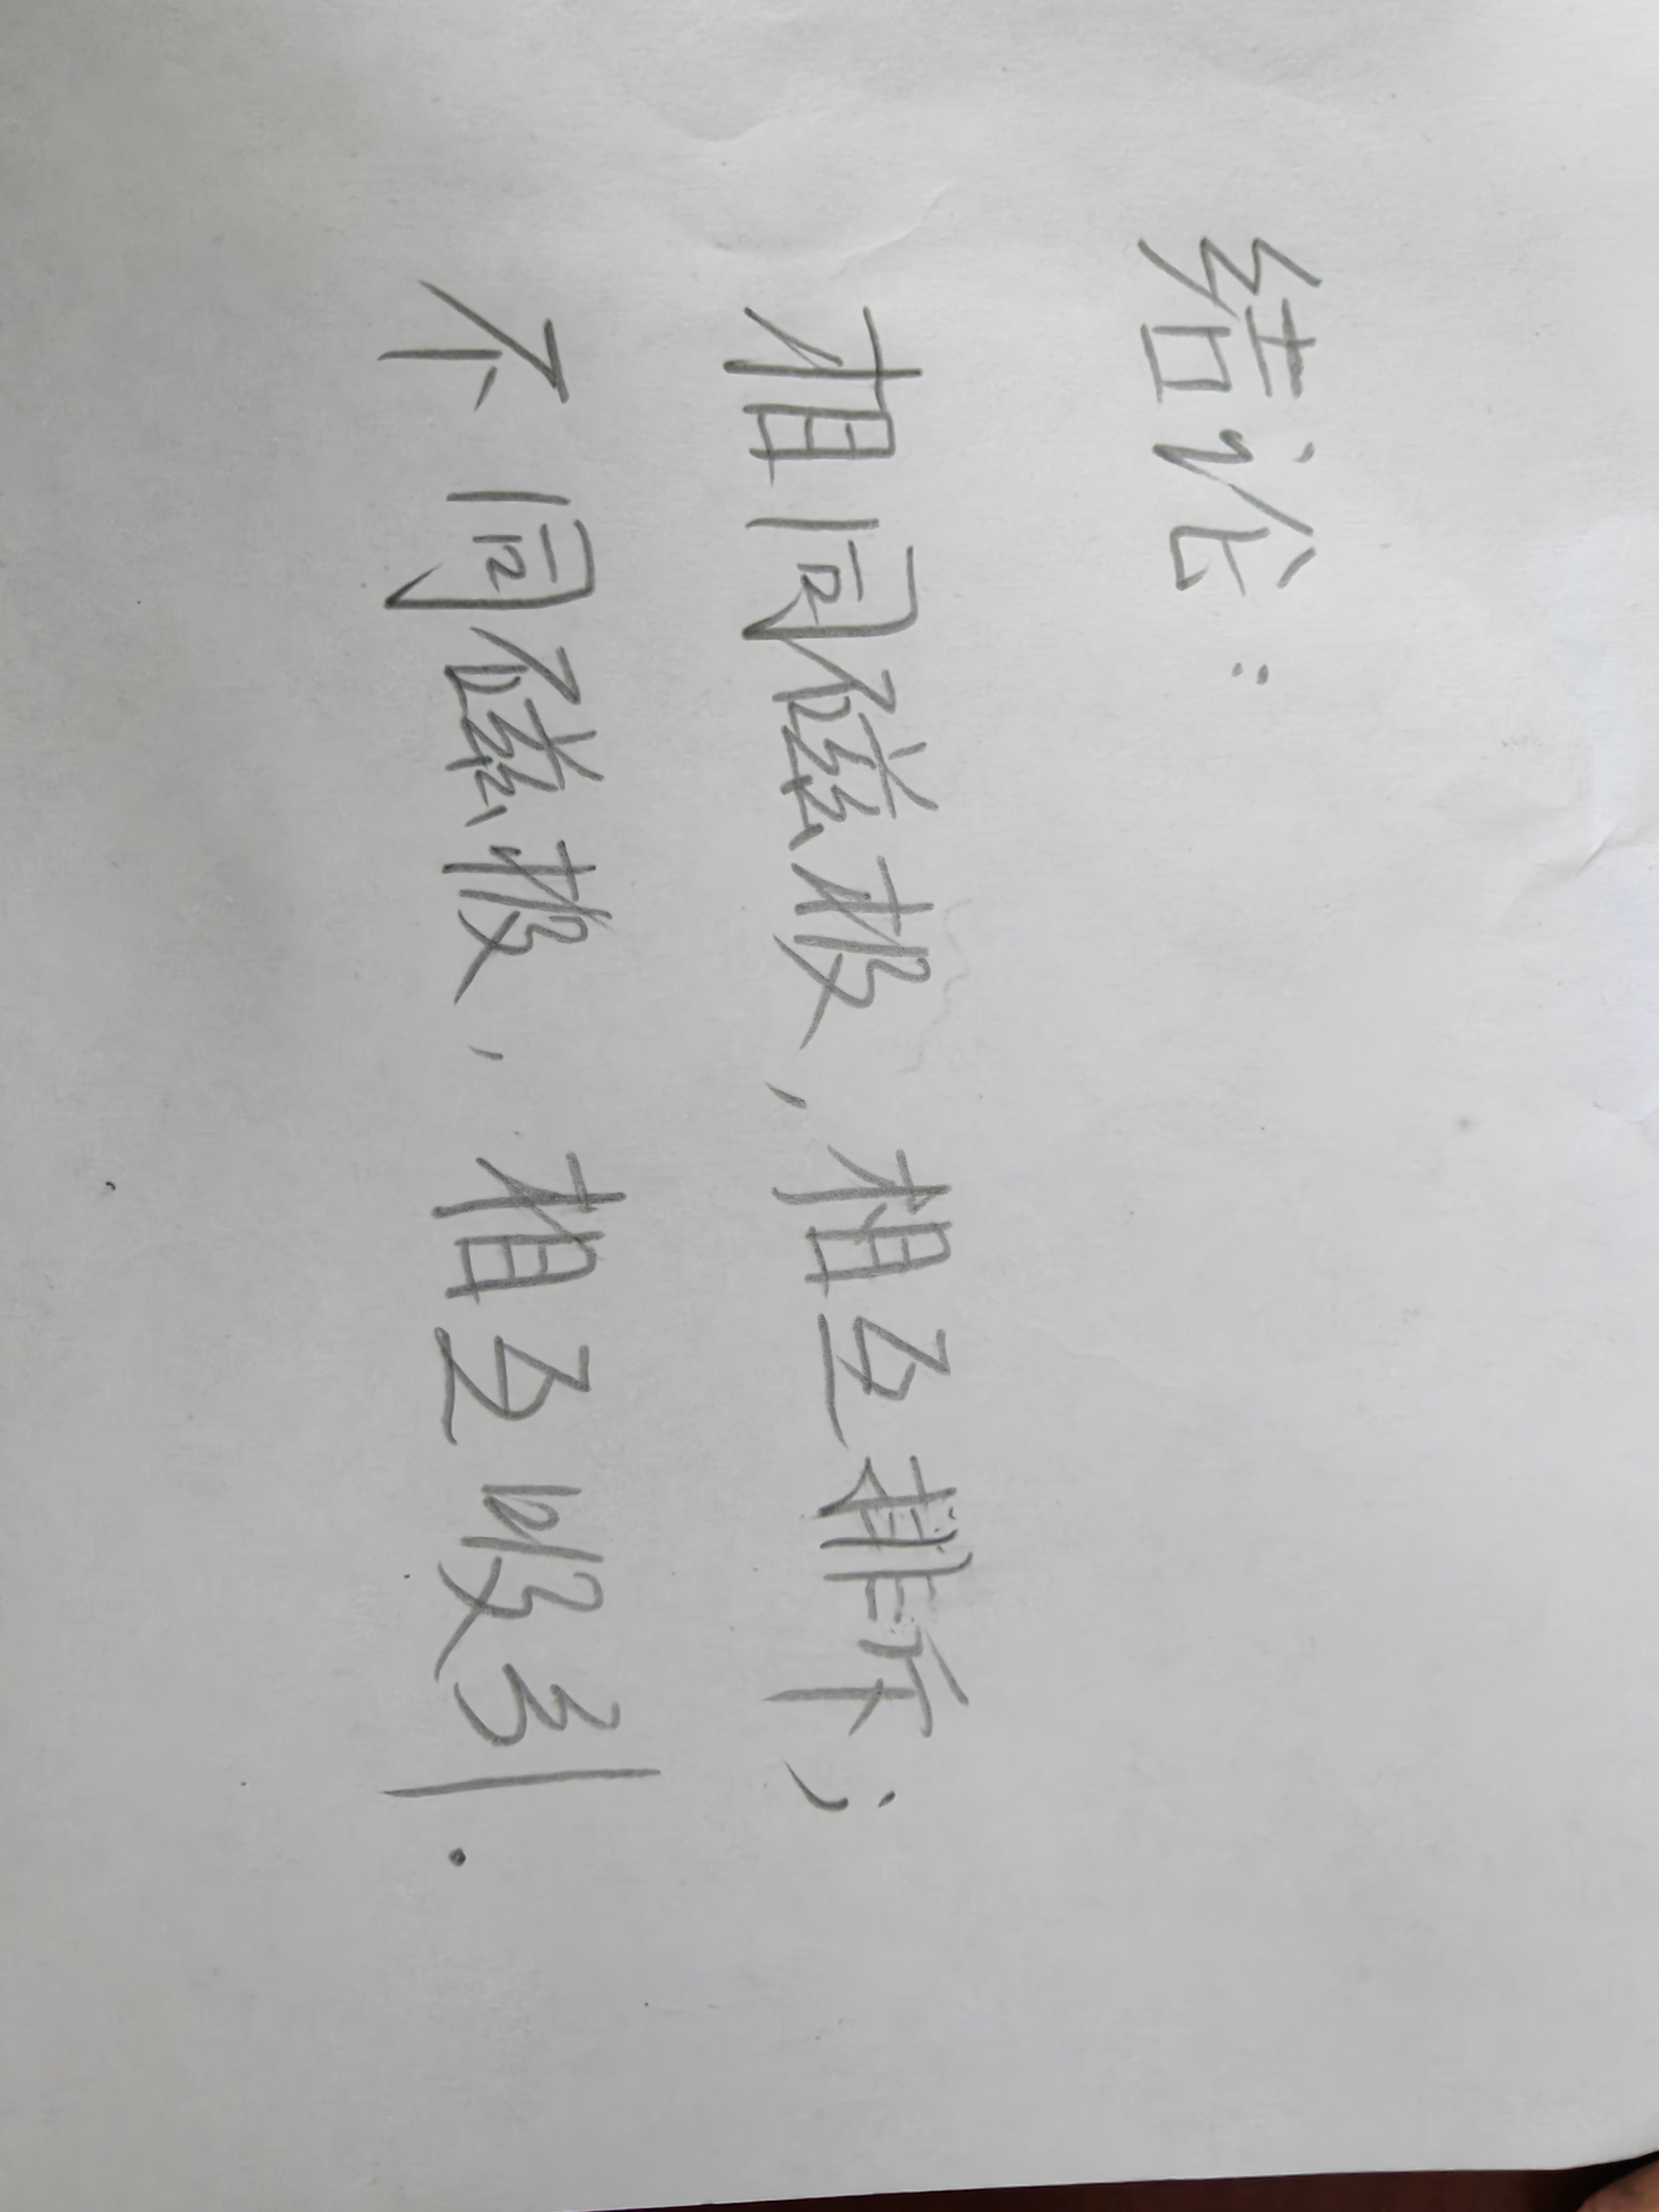 结论:
相同磁极,相互排斥;
不同磁极,相互吸引.